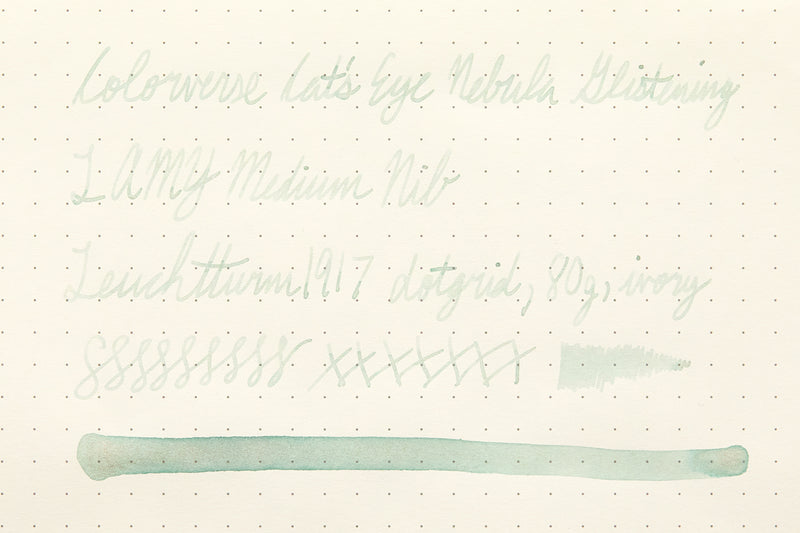 Colorverse Cat's Eye Nebula Glistening
LAMY Medium Nib
Leuchtturm1917 dotgrid, 80g, ivory